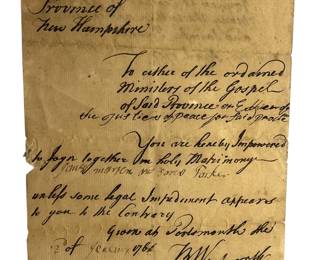 Province of
New Hampshire
To either of the ordained
Ministers of the Gospel
of Said Province or
the Justices of peace for Said
You are hereby Impowered
to Joyn together In holy Matrimony
and
unless some legal Impediment appears
to you to the Contrary
Given at Portsmouth the
of 176